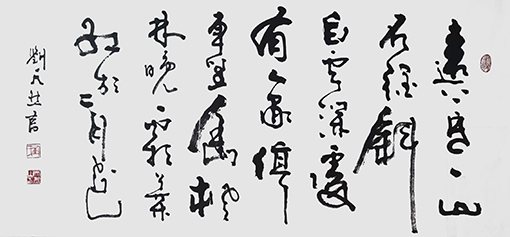 遠上寒山
石徑斜
白雲深處
有人家停
車坐愛楓
林晚霜葉
紅於二月花
劉書